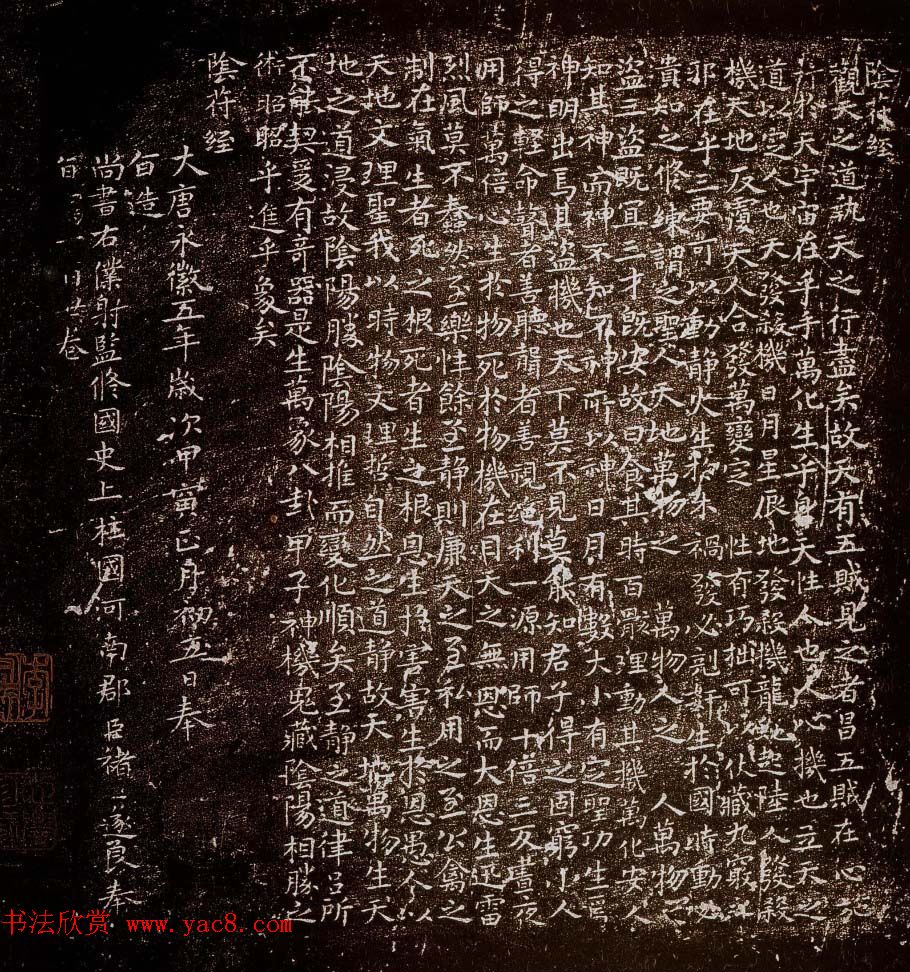 陰符經
觀天之道執天之行盡矣故天有五賊見之者昌五賊在心
行於天宇宙在乎手萬化生乎身天性人也人心機也立天之
道以定人也天發殺機日月星辰地發殺機龍虵起陸人發殺
機天地反覆天人合發萬變定 性有巧拙可以伏藏九竅
耶在乎三要可以動靜火生於木禍發必剋姧生於國時動必
潰知之修練謂之聖人天地萬物之 萬物人之 人萬物之
盜三盜既宜三才既安故曰食其時百骸理動其機萬化安人
知其神而神不知不神所以神日月有數大小有定聖功生焉
神明出焉其盜機也天下莫不見莫能知君子得之固窮小人
得之輕命瞽者善聽聾者善視絕利一源用師十倍三反晝夜
用師萬倍心生於物死於物機在目天之無恩而大恩生迅雷
烈風莫不蠢然至樂性餘至靜則廉天之至私用之至公禽之
制在氣生者死之根死者生之根恩生於害害生於恩愚人以
天地文理聖我以時物文理哲自然之道靜故天地萬物生天
地之道浸故陰陽勝陰陽相推而變化順矣至靜之道律呂所
不能契爰有奇器是生萬象八卦甲子神機鬼藏陰陽相勝之
術昭昭乎進乎象矣
陰符經
大唐永徽五年歲次甲寅正月初五日奉
旨造
尚書右僕射監修國史上柱國河南郡 臣褚遂良奉
旨
書法欣赏 www.yac8.com